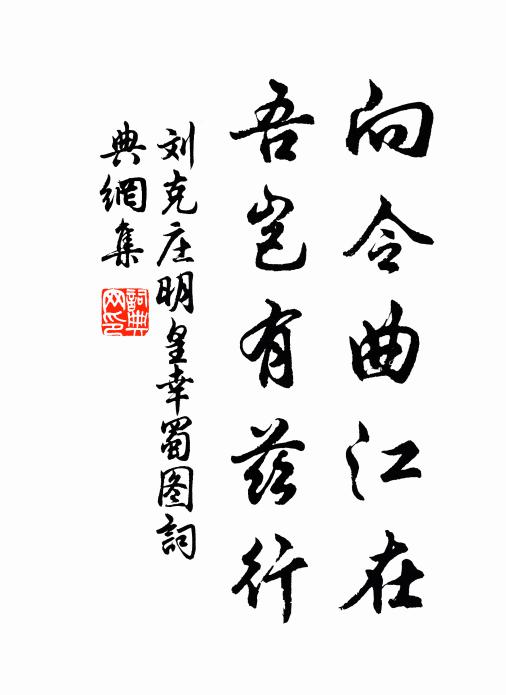 向令曲江在
吾岂有兹行
刘克庄明皇幸蜀图词
典網集
詞典網印